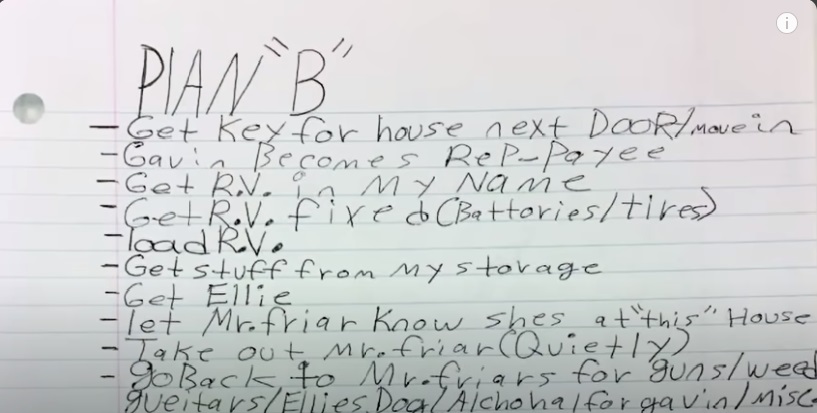 PlAN "B"
- Get Key for house next DOOR/move in
- Gavin Becomes Rep-Payee
- Get R.V. in My Name
- Get R.V. fixed (Battories/tires)
- load R.V.
- Get stuff from My storage
- Get Ellie
- let Mr.friar Know shes at "this" House
- Take out Mr.friar (Quietly)
- go Back to Mr.friars for guns/weed
gueitars/Ellies Dog/Alchohal for gavin/misc